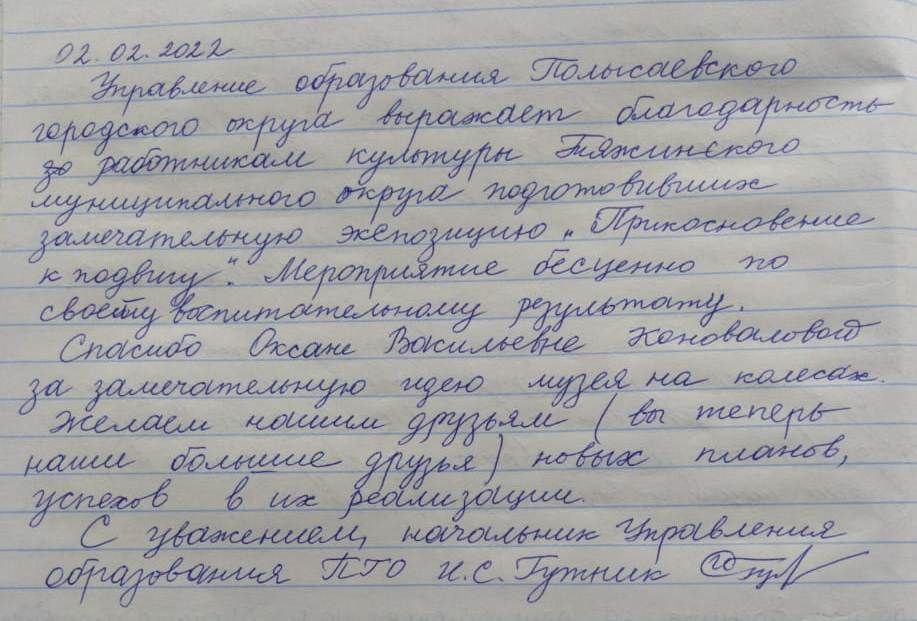 02.02.2022
Управление образования Полысаевского
городского округа выражает благодарность
работникам культуры Тяжинского
муниципального округа подготовивших
замечательную экспозицию „Прикосновение
к подвигу". Мероприятие бесценно по
своему воспитательному результату.
Спасибо Оксане Васильевне Коноваловой
за замечательную идею музея на колесах.
Желаем нашим друзьям (вы теперь
наши большие друзья) новых планов,
успехов в их реализации.
С уважением, начальник Управления
образования ПГО И.С. Гутник